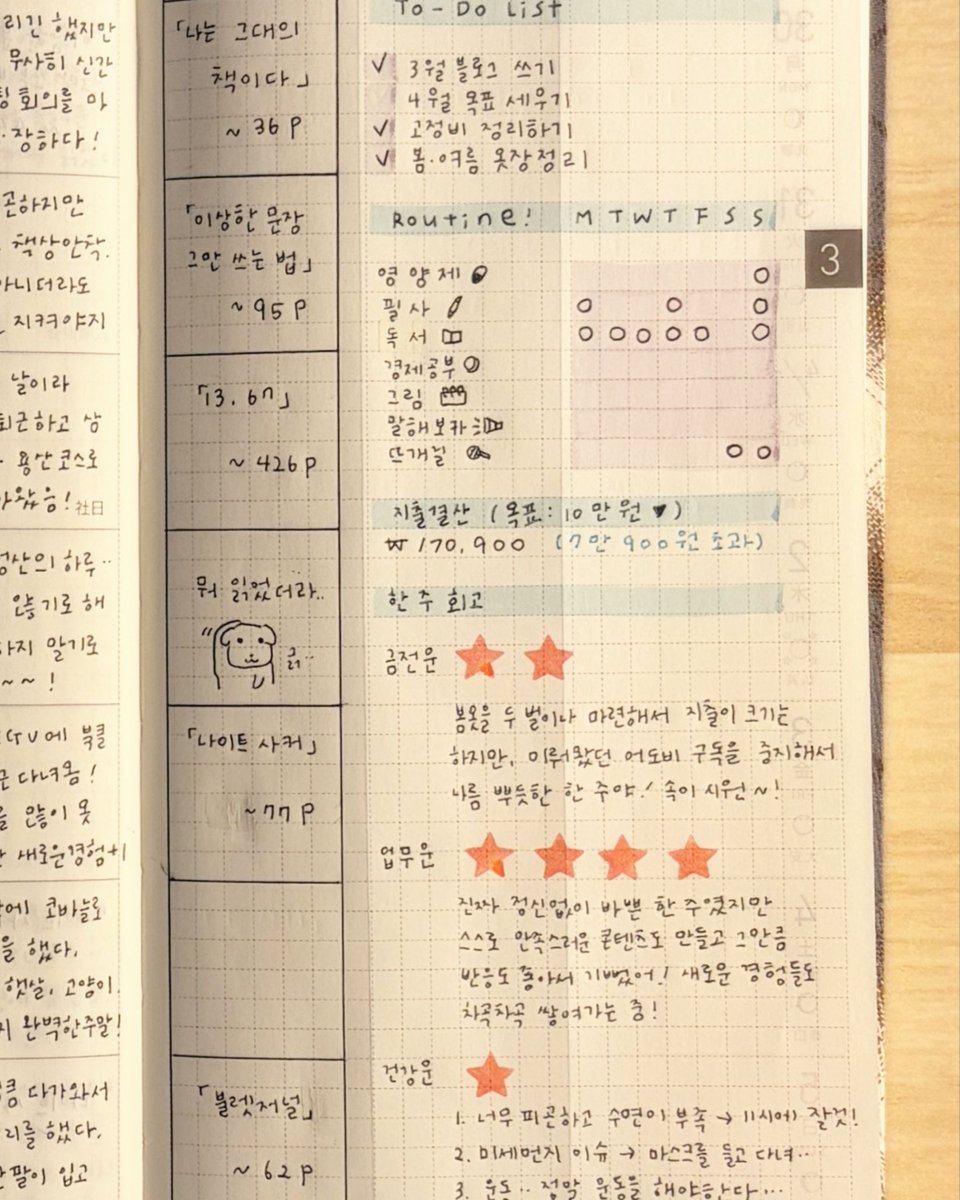 리긴 했지만
무사히 신간
회의를 마
장하다!
곤하지만
책상안착.
아니더라도
지켜야지
날이라
퇴근하고 삼
용산코스로
아왔음! 社日
정산의 하루..
않기로 해
하지 말기로
~~!
CGV에 북클
다녀옴!
많이 못
새로운경험+1
에 코바늘로
을 했다.
햇살, 고양이.
완벽한주말!
큼 다가와서
리를 했다.
팔이 입고
「나는 그대의
책이다」
~ 36 p
「이상한 문장
그만 쓰는 법」
~ 95 p
「13. 67」
~ 426 p
뭐 읽었더라..
긁..
「나이트 사커」
~ 77 p
「불렛저널」
~ 62 p
To-Do List
✓ 3월 블로그 쓰기
4월 목표 세우기
✓ 고정비 정리하기
✓ 봄·여름 옷장정리
Routine! M T W T F S S
영양제
필사
독서
경제공부
그림
말해보카
뜨개질
지출결산 (목표: 10만원 ♥)
₩ 170,900 (7만 900원 초과)
한 주 회고
금전운
봄옷을 두 벌이나 마련해서 지출이 크기는
하지만, 미뤄왔던 어도비 구독을 중지해서
나름 뿌듯한 한 주야! 속이 시원~!
업무운
진짜 정신없이 바쁜 한 주였지만
스스로 만족스러운 콘텐츠도 만들고 그만큼
반응도 좋아서 기뻤어! 새로운 경험들도
차곡차곡 쌓여가는 중!
건강운
1. 너무 피곤하고 수면이 부족 → 11시에 잘것!
2. 미세먼지 이슈 → 마스크를 들고 다녀..
3. 운동.. 정말 운동을 해야한다...
3